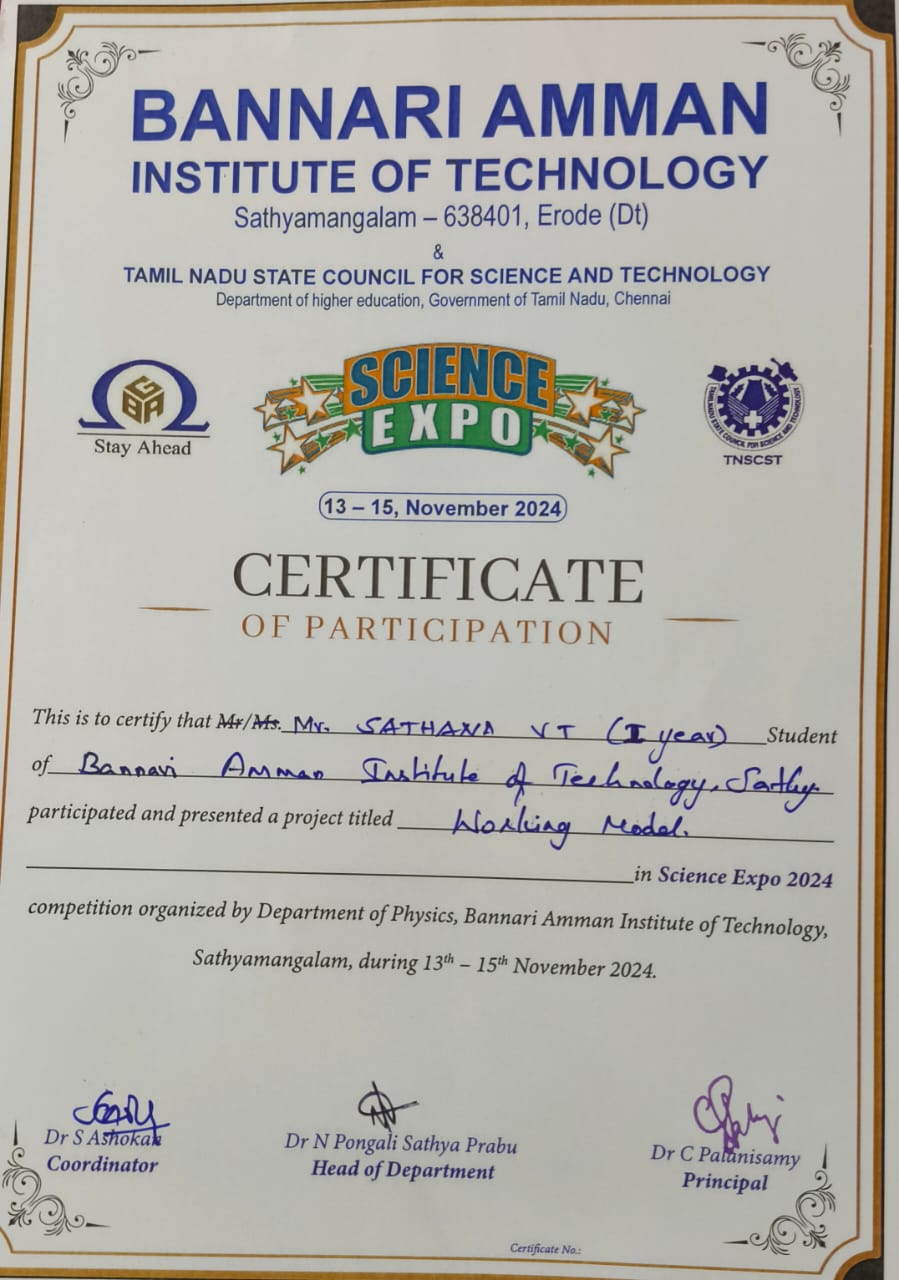 BANNARI AMMAN
INSTITUTE OF TECHNOLOGY
Sathyamangalam – 638401, Erode (Dt)
&
TAMIL NADU STATE COUNCIL FOR SCIENCE AND TECHNOLOGY
Department of higher education, Government of Tamil Nadu, Chennai
GBA
Stay Ahead
SCIENCE
EXPO
TAMILNADU STATE COUNCIL FOR SCIENCE AND TECHNOLOGY
TNSCST
13 – 15, November 2024
CERTIFICATE
OF PARTICIPATION
This is to certify that Mr/Ms. Mr. SATHANA VT (I year) Student
of Bannari Amman Institute of Technology, Sathy.
participated and presented a project titled Working Model.
in Science Expo 2024
competition organized by Department of Physics, Bannari Amman Institute of Technology,
Sathyamangalam, during 13th – 15th November 2024.
Dr S Ashokan
Coordinator
Dr N Pongali Sathya Prabu
Head of Department
Dr C Palanisamy
Principal
Certificate No.: